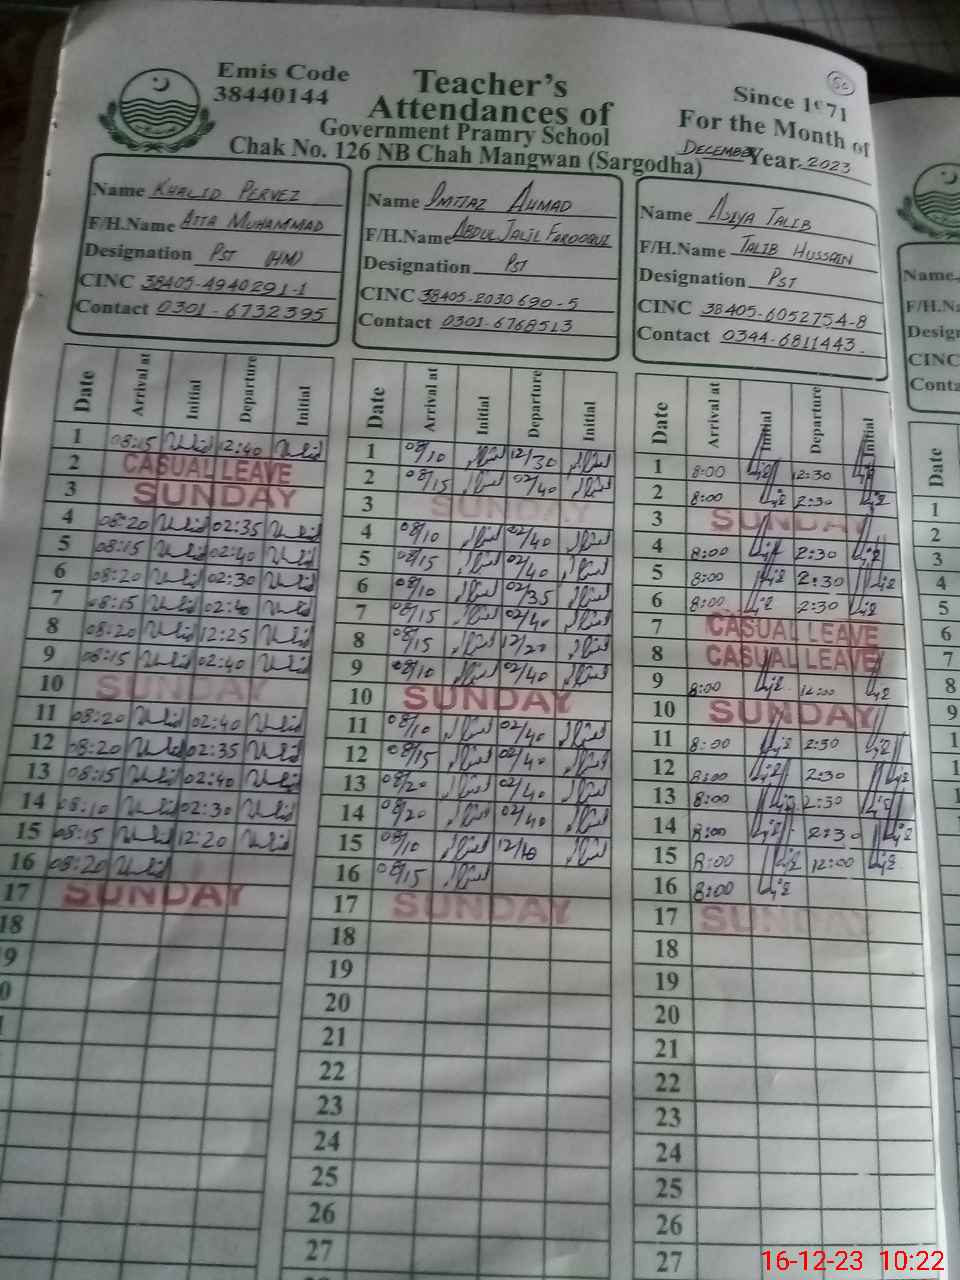 50
Emis Code
38440144
Teacher's
Attendances of
Government Pramry School
Chak No. 126 NB Chah Mangwan (Sargodha)
Since 1971
For the Month of
DECEMBER Year. 2023
Name KHALID PERVEZ
F/H.Name ATTA MUHAMMAD
Designation PST (HM)
CINC 38405-4940291-1
Contact 0301-6732395
Name IMTIAZ AHMAD
F/H.Name ABDUL JALIL FAROOQUI
Designation PST
CINC 38405-2030690-5
Contact 0301-6768513
Name ASIYA TALIB
F/H.Name TALIB HUSSAIN
Designation PST
CINC 38405-6052754-8
Contact 0344-6811443
Date Arrival at Initial Departure Initial
1 08:15 12:40
2 CASUAL LEAVE
3 SUNDAY
4 08:20 02:35
5 08:15 02:40
6 08:20 02:30
7 08:15 02:40
8 08:20 12:25
9 08:15 02:40
10 SUNDAY
11 08:20 02:40
12 08:20 02:35
13 08:15 02:40
14 08:10 02:30
15 08:15 12:20
16 08:20
17 SUNDAY
18
9
0
Date Arrival at Initial Departure Initial
1 08/10 12/30
2 08/15 02/40
3 SUNDAY
4 08/10 02/40
5 08/15 02/40
6 08/10 02/35
7 08/15 02/40
8 08/15 12/20
9 08/10 02/40
10 SUNDAY
11 08/10 02/40
12 08/15 02/40
13 08/20 02/40
14 08/20 02/40
15 08/10 12/10
16 08/15
17 SUNDAY
18
19
20
21
22
23
24
25
26
27
Date Arrival at Initial Departure Initial
1 8:00 12:30
2 8:00 2:30
3 SUNDAY
4 8:00 2:30
5 8:00 2:30
6 8:00 2:30
7 CASUAL LEAVE
8 CASUAL LEAVE
9 8:00 12:00
10 SUNDAY
11 8:00 2:30
12 8:00 2:30
13 8:00 2:30
14 8:00 2:30
15 8:00 12:00
16 8:00
17 SUNDAY
18
19
20
21
22
23
24
25
26
27
Name
F/H.Na
Design
CINC
Conta
Date
1
2
3
4
5
6
7
8
9
16-12-23 10:22